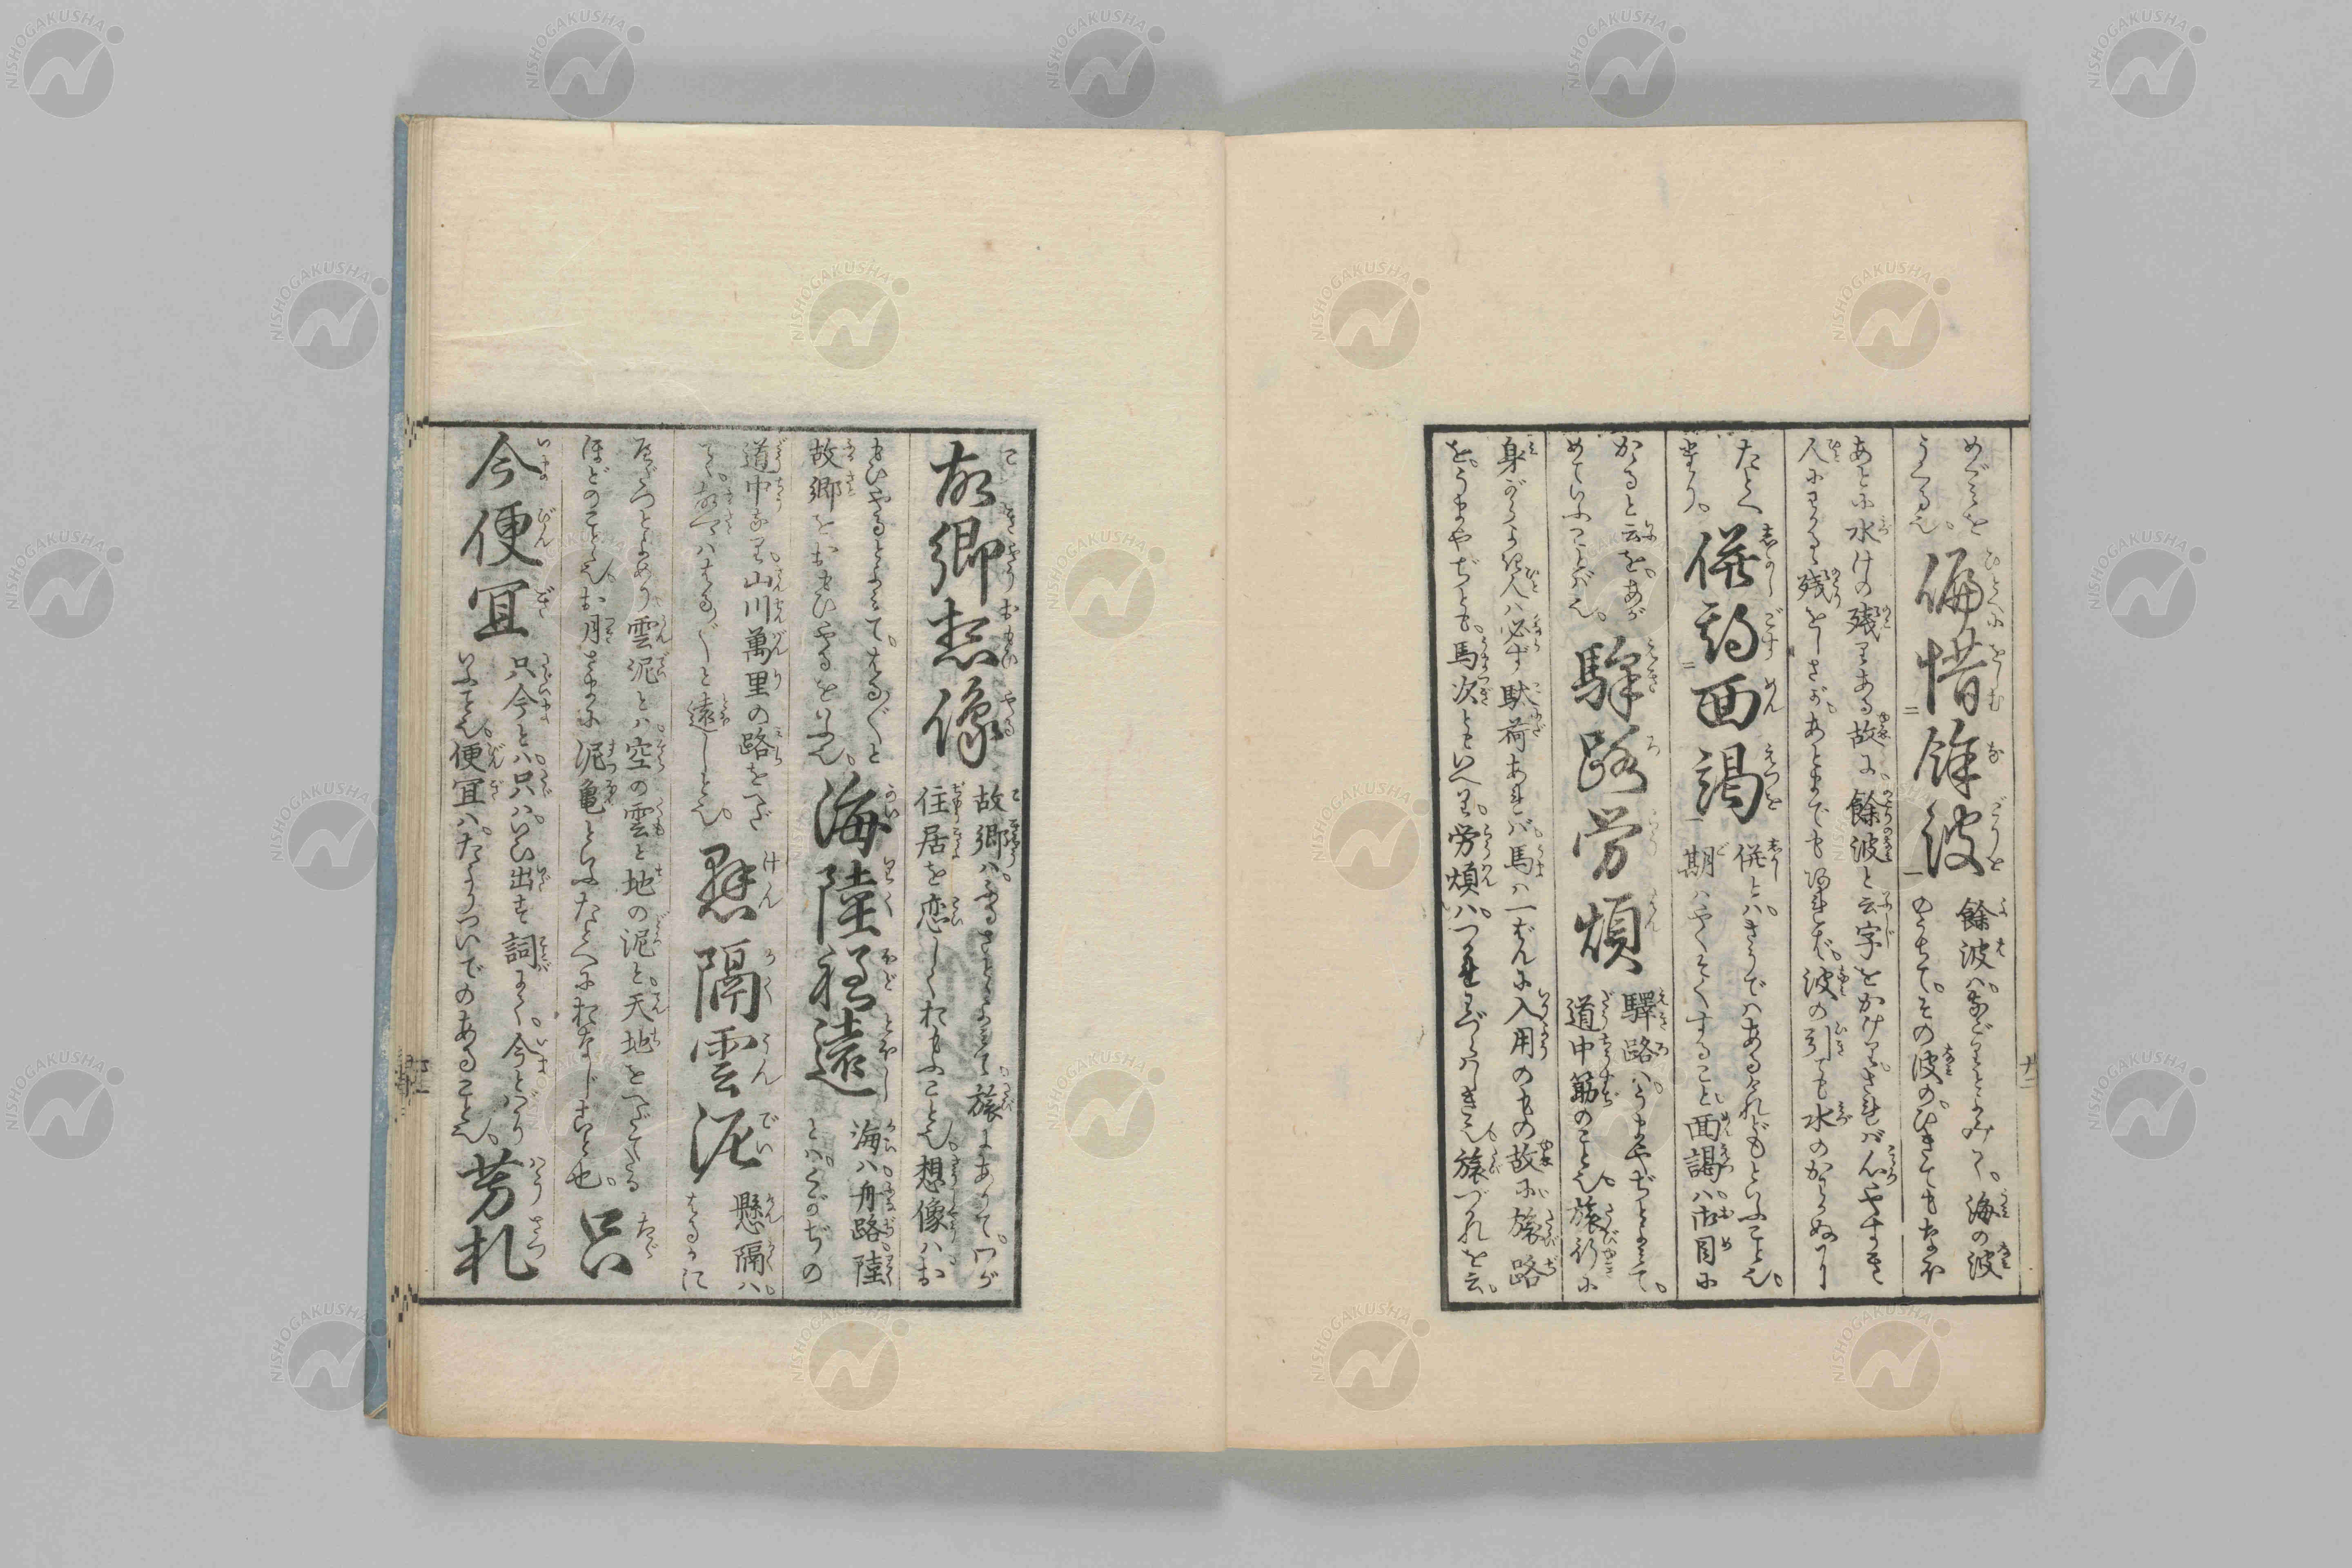 めぐミを
うくる也。
偏惜餘波
餘波ハ。なごりとよみて。海の波
のうちて。その波のひきてもなほ
あとに水けの残りある故に。餘波と云字をかけり。されバ人
人にわかるゝ残をしさが。あとまでも
波の引ても水のかわかぬ
たとへ
なり。
併期面謁
併とハ。さうでハあるけれどもといふこと也。
期ハやくそくすること也。面謁ハ御目に
かゝると云を。あが
めていふことば也。
驛路労煩
驛路ハ。うまやぢとよミて。
道中筋のこと也。旅行に
身がるき人ハ必ず駄荷あれバ。馬ハ一ばんに入用のもの故に旅路
を。うまやぢとも。馬次ともいへり。労煩ハ。つかれ
旅づかれを云。
十二
故郷想像
故郷ハ。ふるさとゝよミて。旅にありて。わが
住居を恋しくおもふこと也。想像ハお
もひやるとよミて。はる〴〵と
故郷をおもひやるをいふ也。
海陸程遠
海ハ舟路。陸
とハ。くがぢの
道中なり。山川萬里の路をへだ
て。故郷ハはる〴〵と遠しと也。
懸隔雲泥
懸隔ハ。
はるかに
へだつとよめり雲泥とハ。空の雲と地の泥と。天地をへだてたる
ほどのこと也。お月さまに泥亀といふたとへにおなじこと也。
只
今便宜
只今とハ。只ハ。いひ出す詞にて。今とハ
いふこと也。便宜ハ。たよりついでのあること也。
芳札